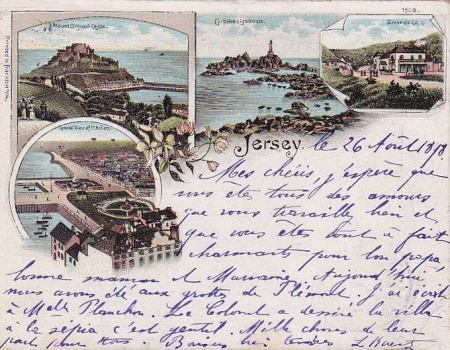 1308.
Mount Orgueil Castle.
Corbière Lighthouse.
General View of St Helier.
Jersey, le 26 Août 1898.
Mes chéris, j'espère que
vous êtes tous des amours
que vous travaillez bien et
que vous êtes tout à fait
charmants pour bon papa
bonne maman et Marraine. Aujourd'hui
nous avons été aux grottes de Plémont. J'ai écrit
à Melle Planchon. Le Colonel a dessiné la villa
à la sépia c'est gentil. Mille choses de leur
part pour tous. Baisers bien tendres